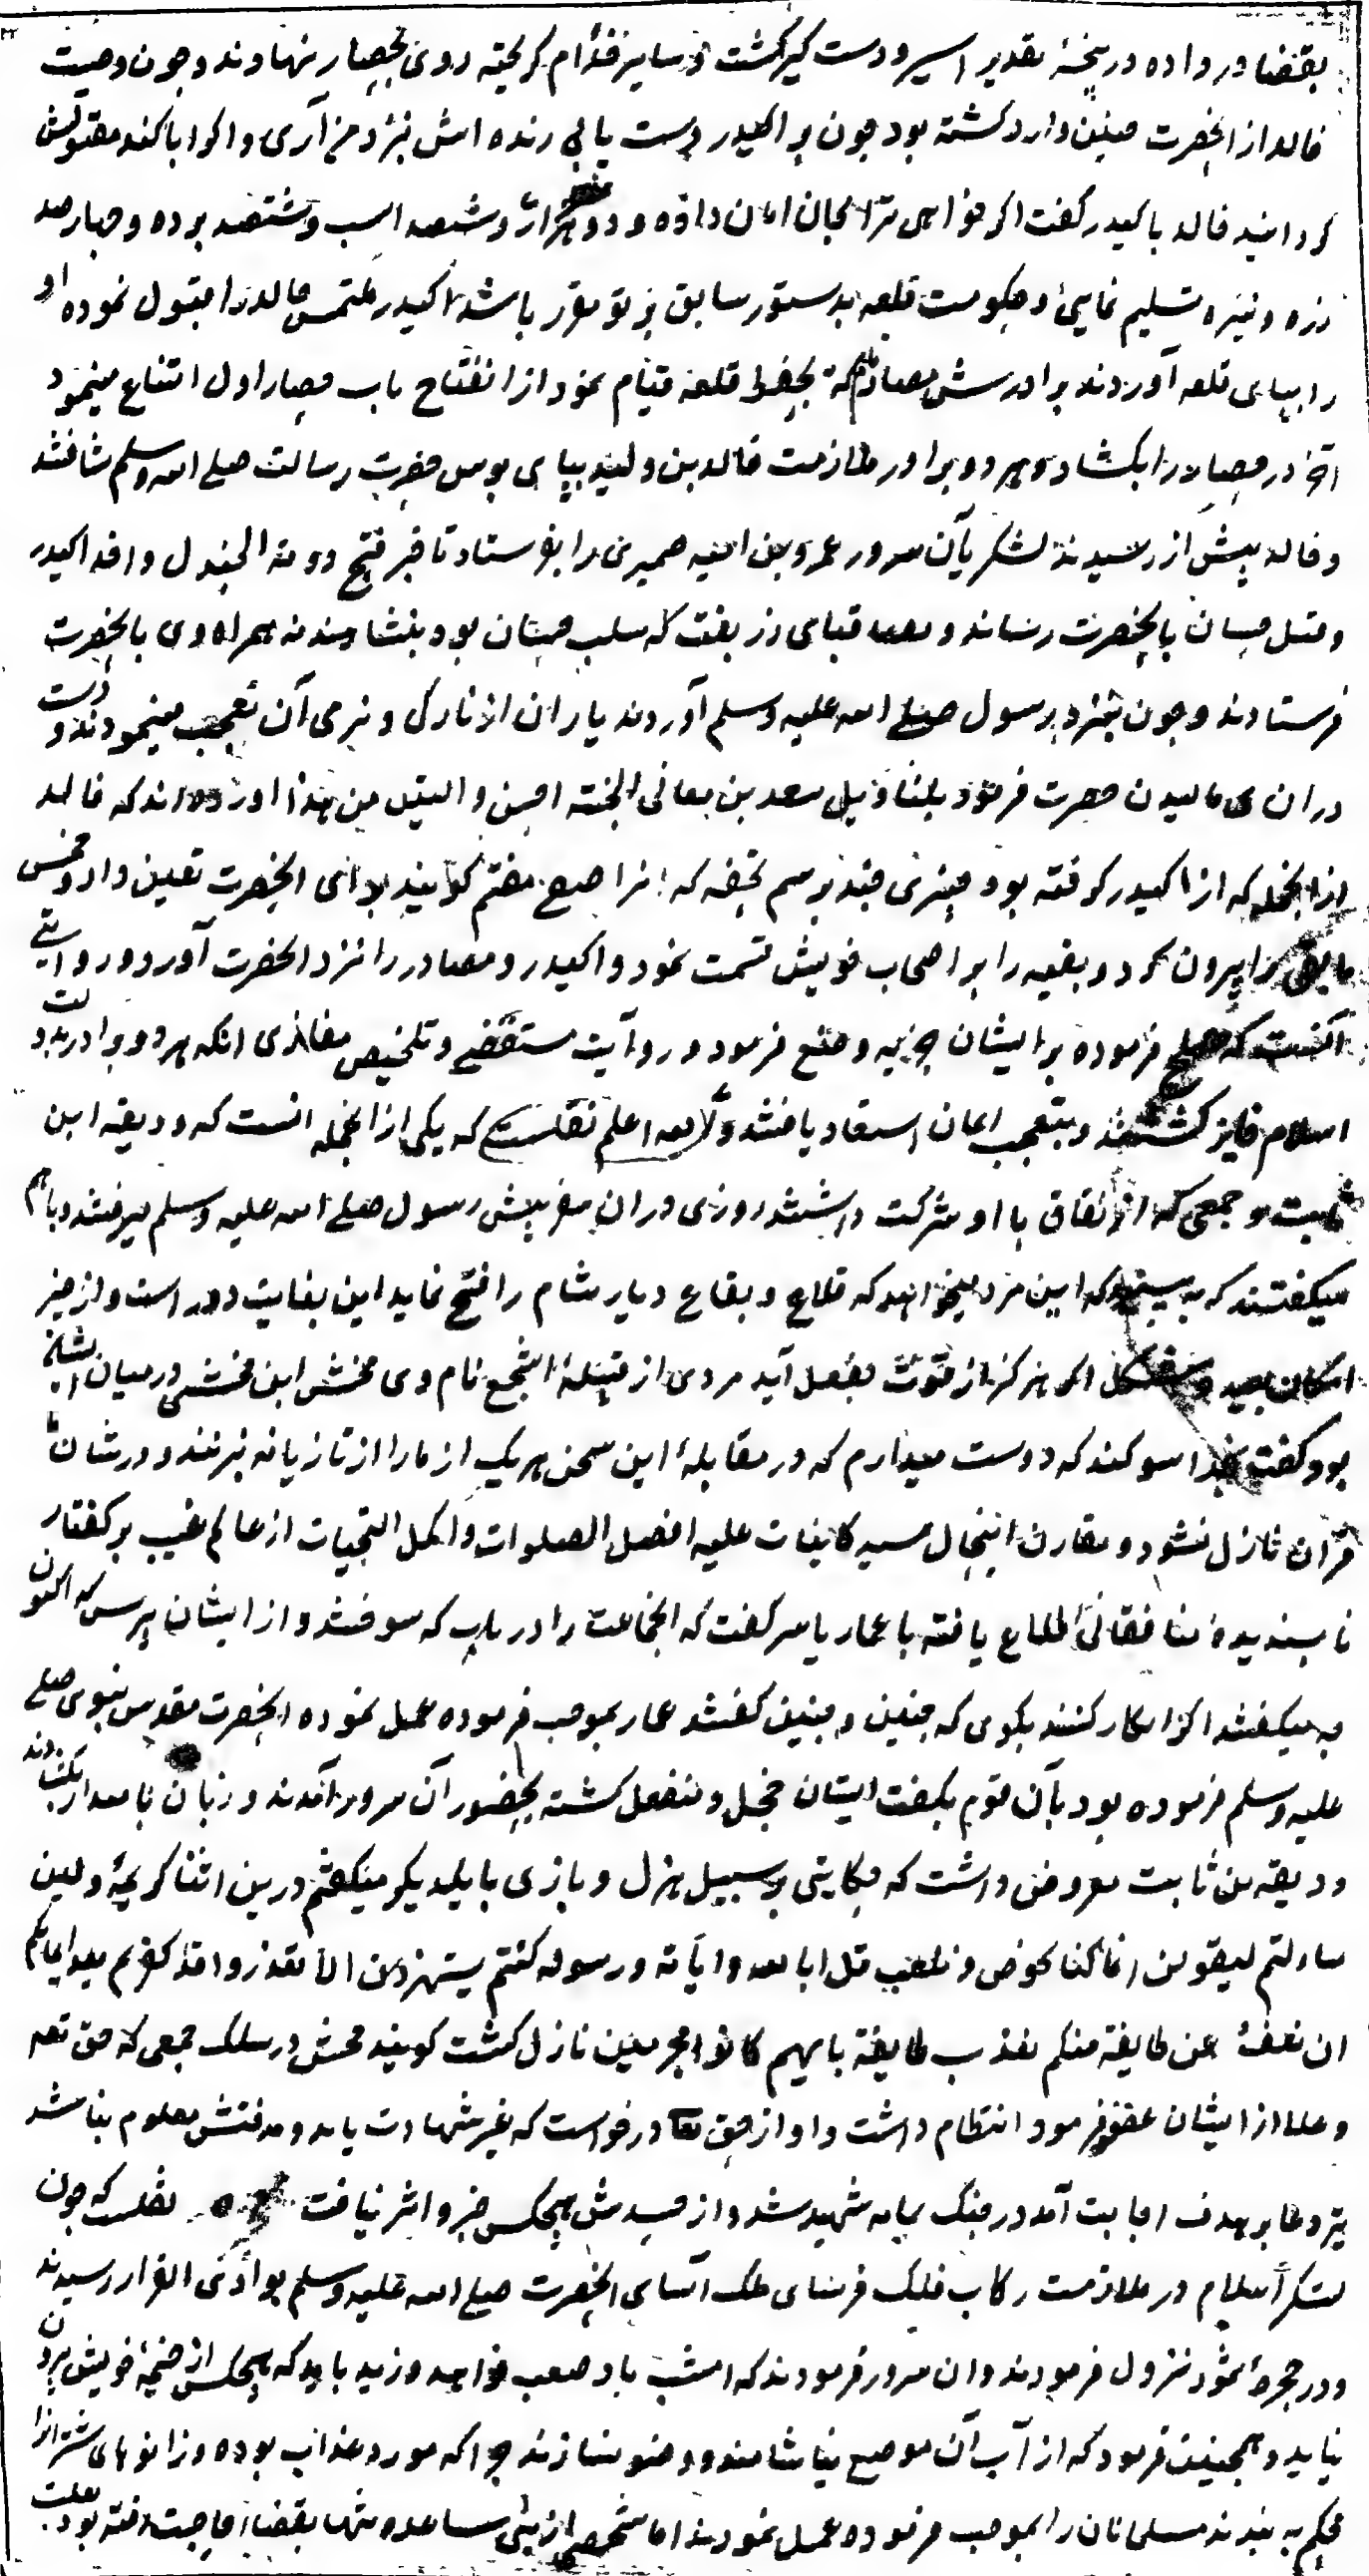 بقضا در داده در پنجهٔ تقدیر اسیر و دست گیر گشت و سایر خدام گریخته روی بحصار نهادند و چون وصیت
خالد از انحضرت چنین وارد گشته بود چون بر اکیدر دست یابی زنده اش نزد من آری و اگر ابا کند مقتولش
گردانید خالد باکیدر گفت اگر خواهی ترا بجان امان داده و دو هزار شتر و ششصد اسب و هشتصد برده و چهار صد
زره و نیزه تسلیم نمایی و حکومت قلعه بدستور سابق بر تو مقرر باشد اکیدر ملتمس خالد را قبول نموده او
را بپای قلعه آوردند برادرش مصاد که بحفظ قلعه قیام نمود از انفتاح باب حصار اول امتناع مینمود
اخر در حصار را بکشاد و هر دو برادر ملازمت خالد بن ولید بپای بوس حضرت رسالت صلی الله وسلم شتافتند
و خالد پیش از رسیدن لشکر بآن سرور عمرو بن امیه ضمیری را بفرستاد تا خبر فتح دومة الجندل و اخذ اکیدر
و قتل حسان بانحضرت رساند و بعضا قبای زربفت که سلب حسان بود بنشاندند همراه وی بانحضرت
فرستادند و چون بنزد رسول صلی الله علیه وسلم آوردند یاران از نازکی و نرمی آن تعجب مینمودند و دست
در ان می مالیدن حضرت فرمود بلمنادیل سعد بن معاذ فی الجنته احسن و الین من هذا اورده اند که خالد
از انجمله که از اکیدر گرفته بود چیزی چند برسم تحفه که انرا صفی مغنم گویند برای انحضرت تعین داد و خمس
مابقی را بیرون کرد و بقیه را بر اصحاب خویش قسمت نمود و اکیدر و مصاد را نزد انحضرت آورد و روایتی
آنست که صلح فرموده بر ایشان جزیه وضع فرمود و روایت مستقصی و تلخیص مغازی انکه هر دو برادر بدولت
اسلام فایز گشتند و بتعجب امان استعاد یافتند والله اعلم نقلست که یکی از انجمله انست که ودیعه ابن
ثابت و جمعی که از نفاق با او شرکت داشتند روزی در ان سفر پیش رسول صلی الله علیه وسلم میرفتند و باهم
میگفتند که به بینید که این مرد میخواهد که قلاع و بقاع دیار شام را فتح نماید این بغایت دور است و از حیز
امکان بعید و مشکل اگر هرگز از قوت بفعل آید مردی از قبیلهٔ اشجع نام وی مخشی ابن مخشی در میان ایشان
بود گفت بخدا سوگند که دوست میدارم که در مقابلهٔ این سخن هر یک از ما را از تازیانه بزنند و در شان ما
قران نازل نشود و مقارن اینحال سید کاینات علیه افضل الصلوات و اکمل التحیات از عالم غیب بر گفتار
ناپسندیده منافقان اطلاع یافته با عمار یاسر گفت که انجماعت را دریاب که سوختند و از ایشان بپرس که اکنون
چه میگفتند اگر انکار کنند بگوی که چنین و چنین گفتند عمار بموجب فرموده عمل نموده انحضرت مقدس نبوی صلی
علیه وسلم فرموده بود بآن قوم بگفت ایشان خجل و منفعل گشته بحضور آن سرور آمدند و زبان باعتذار بگشادند
ودیعه بن ثابت معروض داشت که حکایتی بر سبیل هزل و بازی با یکدیگر میگفتیم درین اثنا کریمهٔ ولین
سالتم لیقولن انما کنا نخوض و نلعب قل ابالله وایاته ورسوله کنتم یستهزؤن لا تعتذروا قد کفرتم بعد ایمانکم
ان نعف عن طایفة منکم نعذب طایفة بانهم کانوا مجرمین نازل گشت گویند مخشی در سلک جمعی که حق تعه
و علا از ایشان عفو فرمود انتظام داشت و او از حق تعا درخواست که بغیر شهادت یابد و مدفنش معلوم نباشد
تیر دعا بر هدف اجابت آمد در جنگ یمامه شهید شد و از جسدش هیچکس خبر و اثر نیافت نقلست که چون
لشکر اسلام در ملازمت رکاب فلک فرسای ملک آسای انحضرت صلی الله علیه وسلم بوادی القرار رسیدند
و در حجر ثمود نزول فرمودند و ان سرور فرمودند که امشب باد صعب خواهد وزید باید که هیچکس از خیمهٔ خویش بیرون
نیاید و همچنین فرمود که از آب آن موضع نیاشامند و وضو نسازند چرا که مورد عذاب بوده و زانوهای شتر انرا
محکم به بندند مسلمانان را بموجب فرموده عمل نمودند اما شخصی از بنی ساعده تنها بقضای حاجت رفته بود بعلت